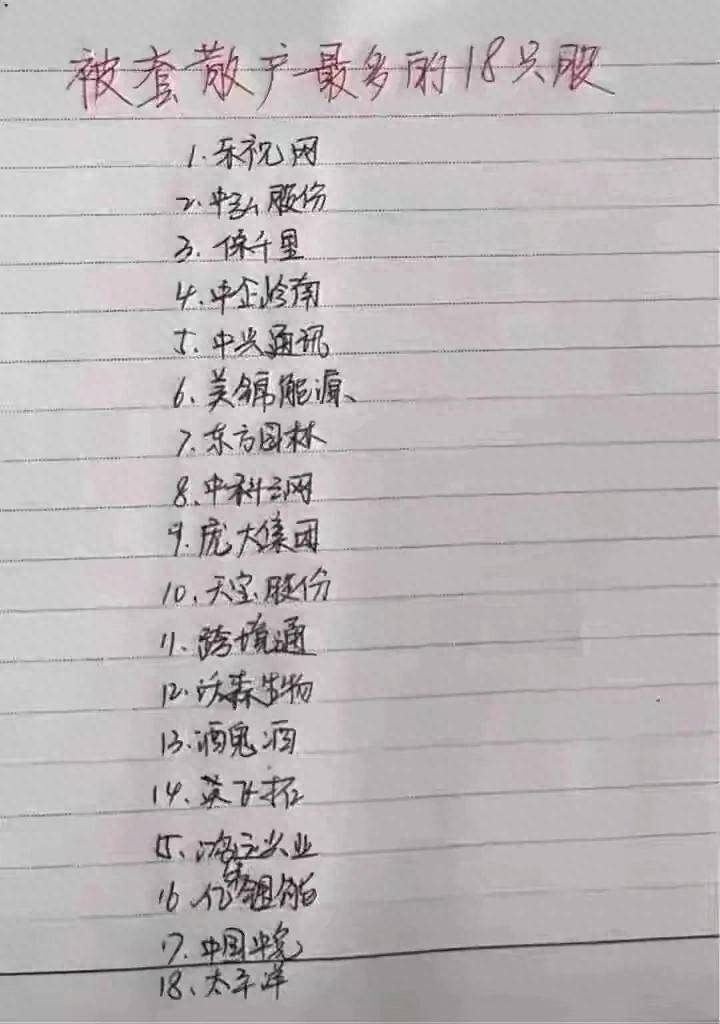 被套散户最多的18只股
1.乐视网
2.中弘股份
3.保千里
4.中金岭南
5.中兴通讯
6.美锦能源、
7.东方园林
8.中科云网
9.庞大集团
10.天宝股份
11.跨境通
12.沃森生物
13.酒鬼酒
14.英飞拓
15、兴业
16.亿
17.中国中
18、太平洋